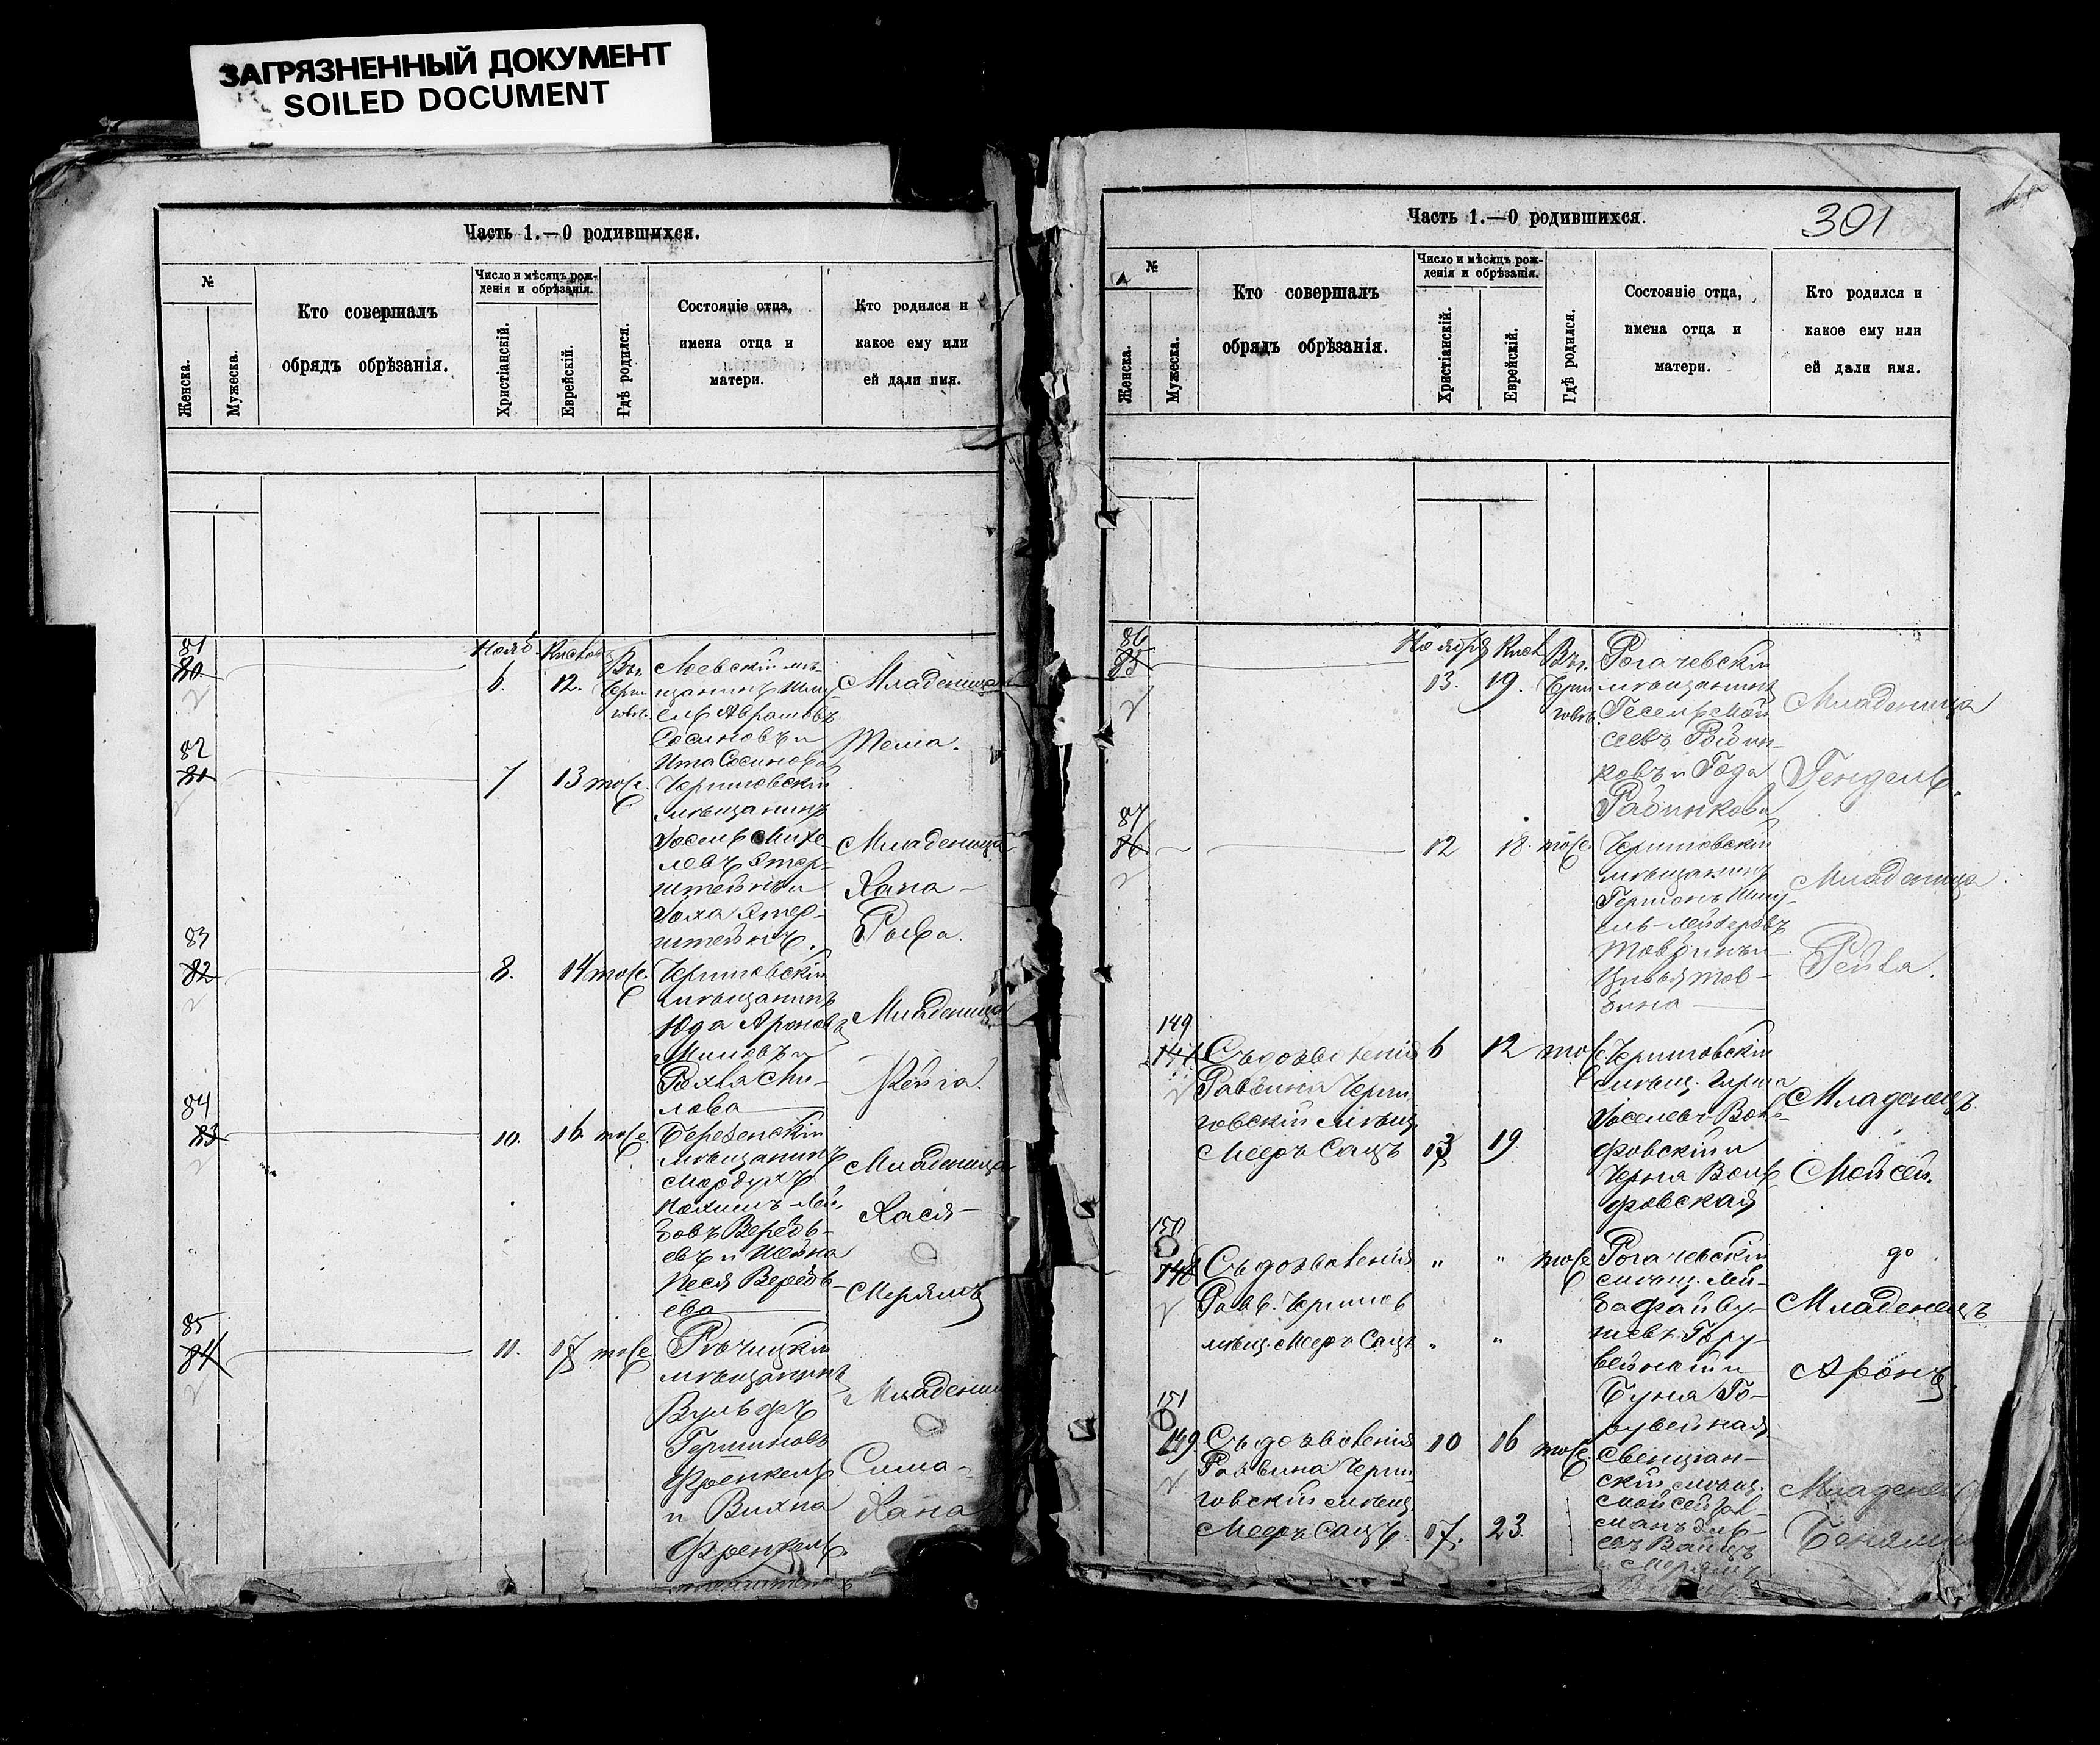 ЗАГРЯЗНЕННЫЙ ДОКУМЕНТ
SOILED DOCUMENT
Часть 1.—О родившихся.
№
Женска.
Мужеска.
Кто совершалъ
обрядъ обрѣзанія.
Число и мѣсяцъ рож-
денія и обрѣзанія.
Христіанскій.
Еврейскій.
Гдѣ родился.
Состояніе отца,
имена отца и
матери.
Кто родился и
какое ему или
ей дали имя.
81
80
Нояб.
6.
12.
Въ г.
Черни
говѣ.
Лоевскій мѣ-
щанинъ Шму-
ель Абрамовъ
Сосиновъ и
Ита Сосинова
Младеница
Тема.
82
81
7
13
тоже.
Черниговскій
мѣщанинъ
Іосель Михе-
левъ Этер-
штейнъ и
Іоха Этер-
штейнъ.
Младеница
Хана-
Рыся.
83
82
8.
14
тоже.
Черниговскій
мѣщанинъ
Юда Ароновъ
Миловъ и
Рохва Ми-
лова
Младеница
Рейза.
84
83
10.
16.
тоже.
Березенскій
мѣщанинъ
Мордухъ
Нохимъ-Лей-
бовъ Веребь-
евъ и Шейна
Песя Веребь-
ева
Младеница
Хася-
Мерямъ
85
84
11.
17
тоже.
Рѣчицкій
мѣщанинъ
Вульфъ
Гершновъ
Френкель
и Вихна
Френкель.
Младениц
Сима-
Хана
Часть 1.—О родившихся.
301
№
Женска.
Мужеска.
Кто совершалъ
обрядъ обрѣзанія.
Число и мѣсяцъ рож-
денія и обрѣзанія.
Христіанскій.
Еврейскій.
Гдѣ родился.
Состояніе отца,
имена отца и
матери.
Кто родился и
какое ему или
ей дали имя.
86
85
Ноября
Кисл
13.
19.
Въ г.
Черни
говѣ.
Рогачевскій
мѣщанинъ
Гесель Мой
сеевъ Рабин-
ковъ и Года
Рабинкова
Младеница
Гендель.
87
86
12
18.
тоже.
Черниговскій
мѣщанинъ
Гершонъ Шму-
ель-Лейзеровъ
Товбинъ и
Цивья Тов-
бина
Младеница
Рейза.
149
147
Съ дозволенія
Раввина Черни
говскій мѣщ.
Мееръ Сацъ
6
12
13
19.
тоже
Черниговскій
мѣщ. Гирша
Іоселевъ Воль-
фовскій и
Черна Воль
фовская
Младенецъ.
Мойсей.
150
148
Съ дозволенія
Равв. Чернигов
мѣщ. Мееръ Сацъ
"
"
"
"
тоже
Рогачевскій
мѣщ. Лей-
ба Файву-
шевъ Гору-
вейнскій и
до
Младенецъ
Аронъ.
151
149
Съ дозволенія
Раввина Черни
говскій мѣщ
Мееръ Сацъ.
10
16
17.
23.
тоже.
Свенцян-
скій мѣщ.
Младенец
Бенями